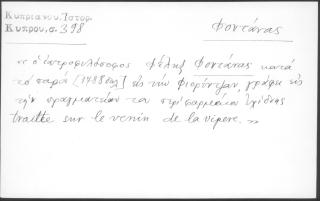 Κυπριανού, Ἱστορ.
Κύπρου, σ. 398
Φοντάνας
«ὁ ἰατροφιλόσοφος Φέλιξ Φοντάνας κατὰ
τὸ παρὸν [1788] εἰς τὴν Φιορέντζαν, γράφει εἰς
τὴν πραγματείαν του περὶ φαρμακίου ἐχίδνης
traitte sur le venin de la vipere.»